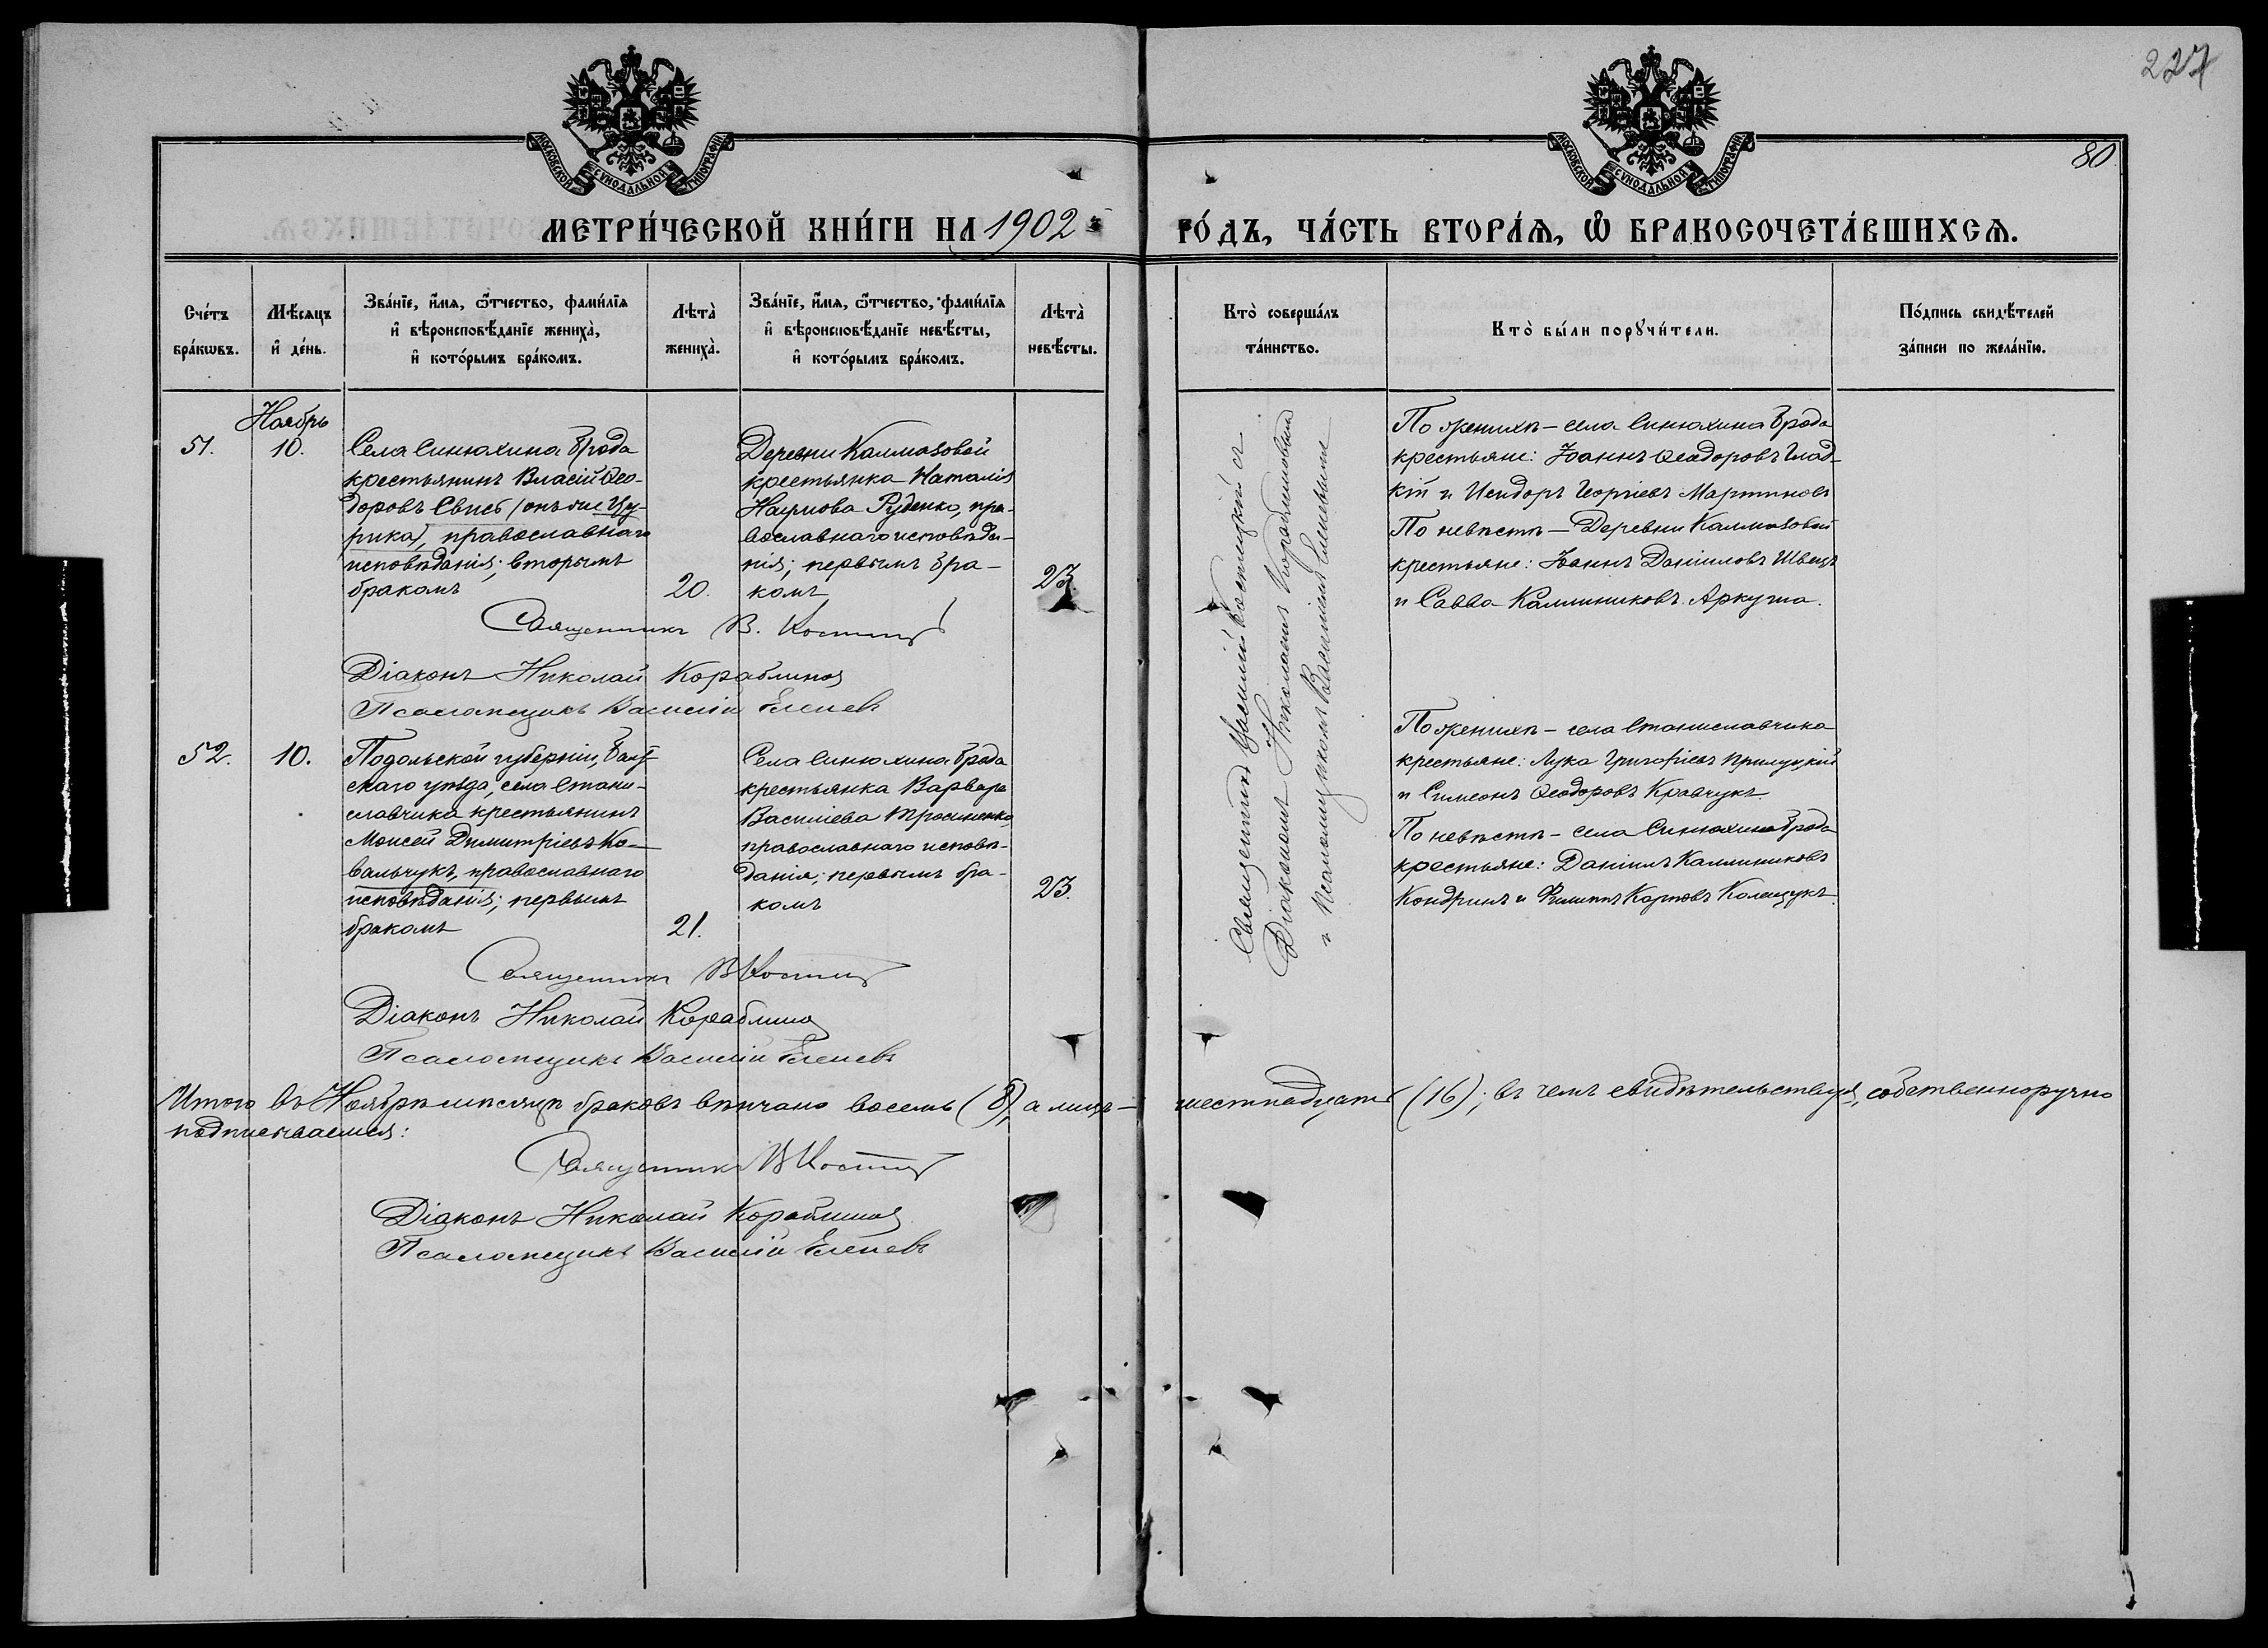 227
80
МОСКОВСКОЙ СѴНОДАЛЬНОЙ ТИПОГРАФІИ
МОСКОВСКОЙ СѴНОДАЛЬНОЙ ТИПОГРАФІИ
МЕТРИ́ЧЕСКОЙ КНИ́ГИ НА 1902 й
ГО́ДЪ, ЧА́СТЬ ВТОРА́Ѧ, Ѽ БРАКОСОЧЕТА́ВШИХСѦ.
Сче́тъ
бра́кѡвъ.
Мѣ́сяцъ
и҆ де́нь.
Зва́нїе, и҆́мя, ѻ҆́тчество, фами́лїя
и҆ вѣроисповѣ́данїе жениха̀,
и҆ кото́рымъ бра́комъ.
Лѣ́та̀
жениха̀.
Зва́нїе, и҆́мя, ѻ҆́тчество, фами́лїя
и҆ вѣроисповѣ́данїе невѣ́сты,
и҆ кото́рымъ бра́комъ.
Лѣ́та̀
невѣ́сты.
Кто̀ соверша́лъ
та́инство.
Кто̀ бы́ли порꙋчи́тели.
По́дпись свидѣ́телей
за́писи по жела́нїю.
Ноябрь
51.
10.
Села Синюхина Брода
крестьянинъ Власій Ѳео-
доровъ Свисъ (онъ же Цу-
рика), православнаго
исповѣданія; вторымъ
бракомъ
20.
Деревни Калмазовой
крестьянка Наталія
Наумова Руденко, пра-
вославнаго исповѣда-
нія; первымъ бра-
комъ
23.
Священникъ В.
Діаконъ Николай Кораблиновъ
Псаломщикъ Василій Еленевъ
По женихѣ – села Синюхина Брода
крестьяне: Іоаннъ Ѳеодоровъ Глад-
кій и Исидоръ Георгіевъ Мартиновъ
По невѣстѣ – Деревни Калмазовой
крестьяне: Іоаннъ Даніиловъ Швецъ
и Савва Каллиниковъ Аркуша.
52.
10.
Подольской губерніи, Балт-
скаго уѣзда, села Стани-
славчика крестьянинъ
Моисей Димитріевъ Ко-
вальчукъ, православнаго
исповѣданія; первымъ
бракомъ
21.
Села Синюхина Брода
крестьянка Варвара
Василіева Трохименко,
православнаго исповѣ-
данія; первымъ бра-
комъ
23.
Священникъ В
Діаконъ Николай Кораблиновъ
Псаломщикъ Василій Еленевъ
По женихѣ – села Станиславчика
крестьяне: Лука Григоріевъ Прилуцкій
и Симеонъ Ѳеодоровъ Кравчукъ.
По невѣстѣ – села Синюхина Брода
крестьяне: Даніилъ Каллиниковъ
Кондринъ и Филиппъ Карповъ Колещукъ.
Священникъ Василій Костецкій съ
Діакономъ Николаемъ Кораблиновымъ
и Псаломщикомъ Василіемъ Еленевымъ
Итого въ Ноябрѣ мѣсяцѣ браковъ вѣнчано восемь (8), а лицъ – шестнадцать (16); въ чемъ свидѣтельствуя, собственноручно
подписываемся:
Священникъ В
Діаконъ Николай Кораблиновъ
Псаломщикъ Василій Еленевъ